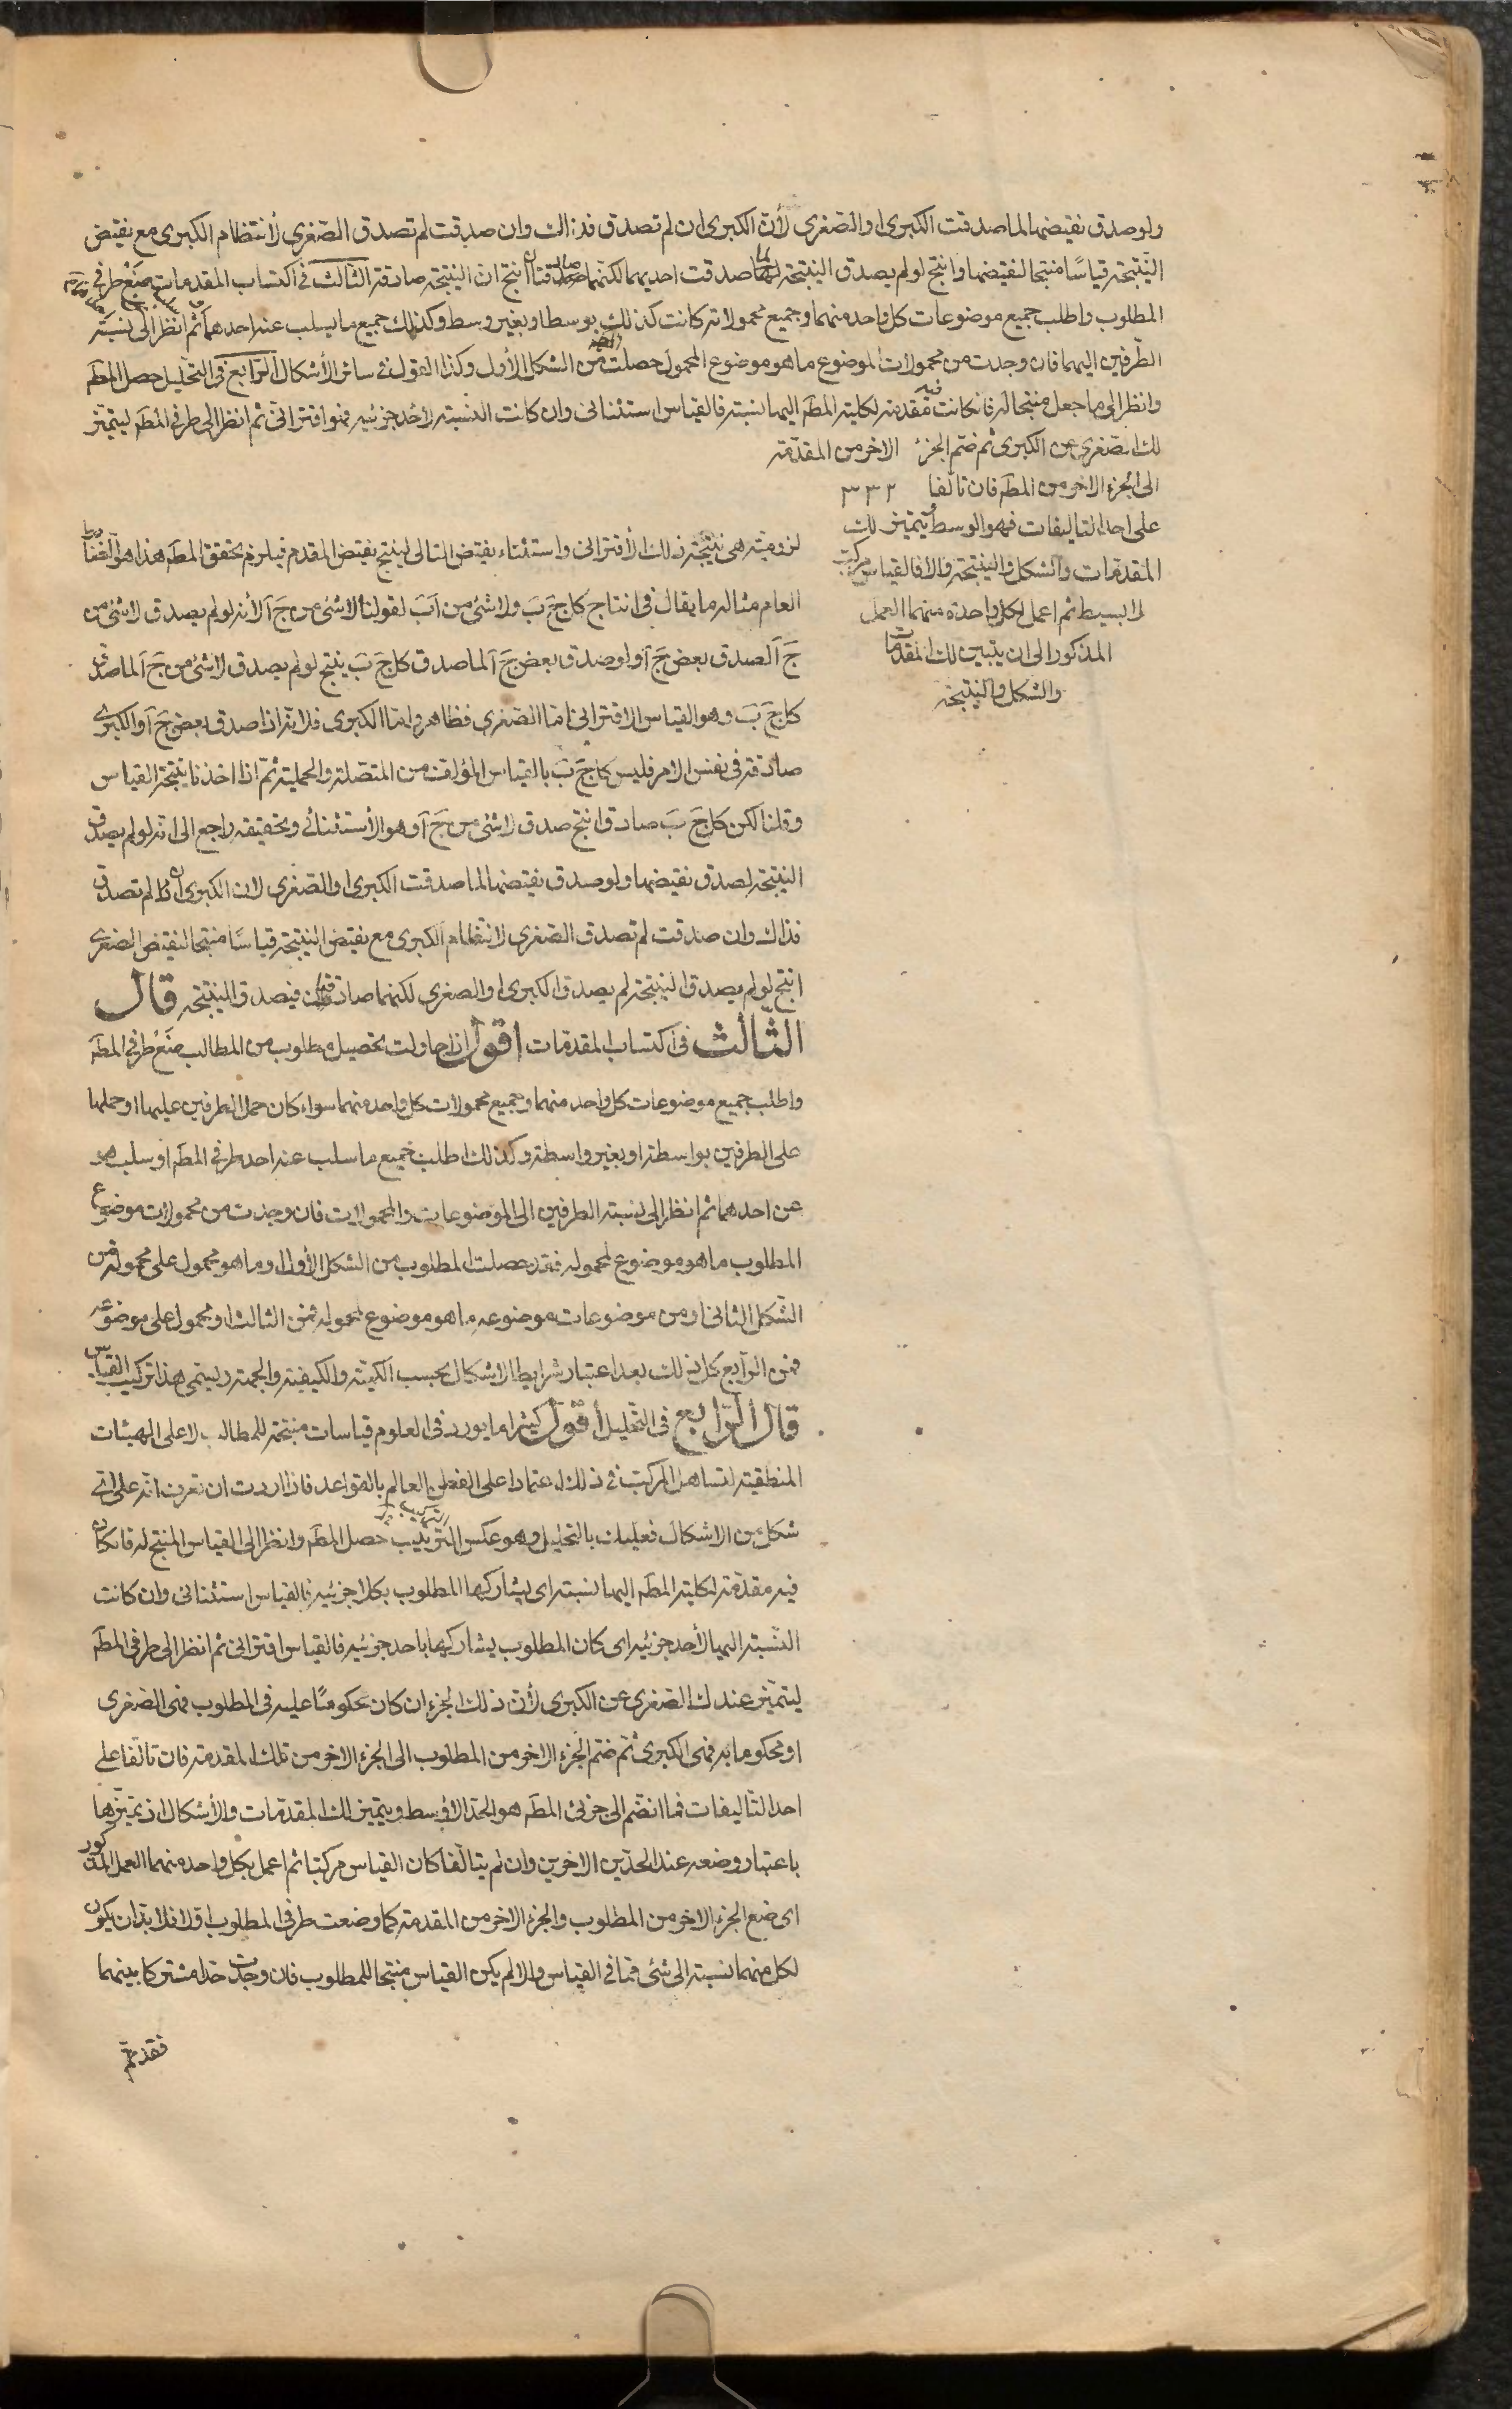 ولو صدق نقيضها لما صدقت الكبرى او الصغرى لأن الكبرى ان لم تصدق فذاك وان صدقت لم تصدق الصغرى لأنتظام الكبرى مع نقيض
النتيجة قياسًا منتجا لنقيضها وانتج لو لم يصدق النتيجة لما صدقت احديهما لكنهما صادقتان انتج ان النتيجة صادقة الثالث في اكتساب المقدمات ضع طرفي
المطلوب واطلب جميع موضوعات كل واحد منهما وجميع محمولاته كانت كذلك بوسط او بغير وسط وكذلك جميع ما يسلب عنه احدهما ثم انظر الى نسبة
الطرفين اليهما فان وجدت من محمولات الموضوع ما هو موضوع المحمول حصلت من الشكل الأول وكذا القول في سائر الأشكال الرابع في التحليل حصل المط
وانظر الى ما جعل منتجا له فان كانت فيه مقدمة لكلية المط اليها نسبة فالقياس استثنائى وان كانت النسبة لأحد جزئيه فهو اقترانى ثم انظر الى طرفى المط ليتميز
لك الصغرى عن الكبرى ثم ضم الجزء الاخر من المقدمة
الى الجزء الاخر من المط فان تالفا ٣٣٢
على احد التاليفات فهو الوسط ويتميز لك
المقدمات والشكل والنتيجة والا فالقياس مركب
لا بسيط ثم اعمل لكل واحدة منهما العمل
المذكور الى ان يتبين لك المقدمات
والشكل والنتيجة
لزومية هى نتيجة ذلك الأقترانى واستثناء نقيض التالى لينتج نقيض المقدم فيلزم تحقق المط هذا هو القانون
العام مثاله ما يقال في انتاج كل ج ب ولا شئ من ا ب لقولنا لا شئ من ج ا لأنه لو لم يصدق لا شئ من
ج ا لصدق بعض ج ا ولو صدق بعض ج ا لما صدق كل ج ب ينتج لو لم يصدق لا شئ من ج ا لما صدق
كل ج ب وهو القياس الاقترانى اما الصغرى فظاهر واما الكبرى فلانه اذا صدق بعض ج ا والكبرى
صادقة في نفس الامر فليس كل ج ب بالقياس المؤلف من المتصلة والحملية ثم اذا اخذنا نتيجة القياس
وقلنا لكن كل ج ب صادق انتج صدق لا شئ من ج ا وهو الأستثنائى وتحقيقه راجع الى انه لو لم يصدق
النتيجة لصدق نقيضها ولو صدق نقيضها لما صدقت الكبرى او الصغرى لان الكبرى ان لم تصدق
فذاك وان صدقت لم تصدق الصغرى لانتظام الكبرى مع نقيض النتيجة قياسًا منتجا لنقيض الصغرى
انتج لو لم يصدق النتيجة لم يصدق الكبرى او الصغرى لكنهما صادقتان فيصدق النتيجة قال
الثالث في اكتساب المقدمات اقول اذا حاولت تحصيل مطلوب من المطالب ضع طرفى المط
واطلب جميع موضوعات كل واحد منهما وجميع محمولات كل واحد منهما سواء كان حمل الطرفين عليها او حملها
على الطرفين بواسطة او بغير واسطة وكذلك اطلب جميع ما سلب عنه احد طرفى المط او سلب هو
عن احدهما ثم انظر الى نسبة الطرفين الى الموضوعات والمحمولات فان وجدت من محمولات موضوع
المطلوب ما هو موضوع لمحموله فقد حصلت المطلوب من الشكل الأول او ما هو محمول على محموله فمن
الشكل الثانى او من موضوعات موضوعه ما هو موضوع لمحموله فمن الثالث او محمول على موضوعه
فمن الرابع كل ذلك بعد اعتبار شرايط الاشكال بحسب الكمية والكيفية والجهة ويسمى هذا تركيب القياس
قال الرابع في التحليل أقول كثيرا ما يورد في العلوم قياسات منتجة للمطالب لا على الهيئات
المنطقية لتساهل المركب في ذلك اعتمادا على الفطن العالم بالقواعد فاذا اردت ان تعرف انه على اى
شكل من الاشكال فعليك بالتحليل وهو عكس التركيب حصل المط وانظر الى القياس المنتج له فان كان
فيه مقدمة لكلية المط اليها نسبة اى يشاركها المطلوب بكلا جزئيه فالقياس استثنائى وان كانت
النسبة اليها لأحد جزئيه اى كان المطلوب يشاركها باحد جزئيه فالقياس اقترانى ثم انظر الى طرفى المط
ليتميز عندك الصغرى عن الكبرى لأن ذلك الجزء ان كان محكومًا عليه في المطلوب فهى الصغرى
او محكوما به فهى الكبرى ثم ضم الجزء الاخر من المطلوب الى الجزء الاخر من تلك المقدمة فان تالفا على
احد التاليفات فما انضم الى جزئى المط هو الحد الاوسط ويتميز لك المقدمات والأشكال اذ تميزها
باعتبار وضعه عند الحدين الاخرين وان لم يتالفا كان القياس مركبا ثم اعمل بكل واحد منهما العمل المذكور
اى ضع الجزء الاخر من المطلوب والجزء الاخر من المقدمة كما وضعت طرفى المطلوب اولا فلا بد ان يكون
لكل منهما نسبة الى شئ مما في القياس والا لم يكن القياس منتجا للمطلوب فان وجدت حدا مشتركا بينهما
فقد تم